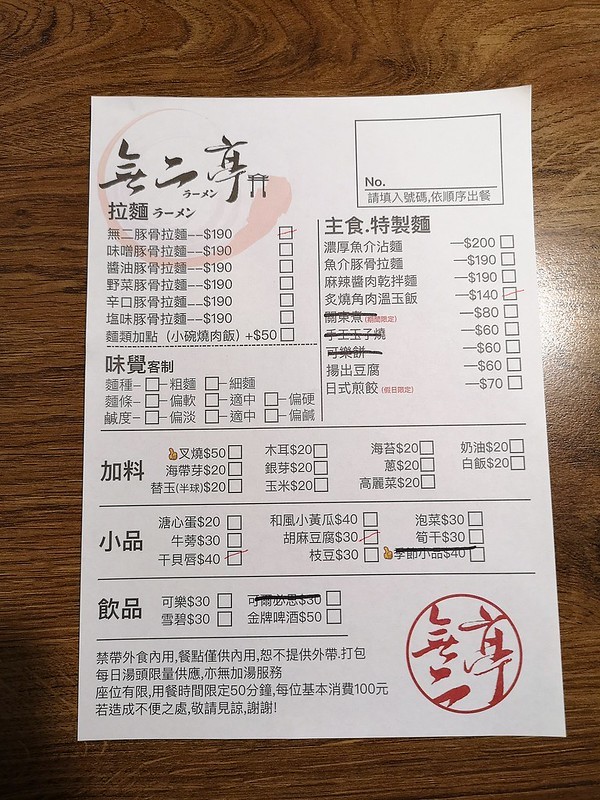 無二亭
ラーメン
No.
請填入號碼,依順序出餐
拉麵 ラーメン
無二豚骨拉麵--$190
味噌豚骨拉麵--$190
醬油豚骨拉麵--$190
野菜豚骨拉麵--$190
辛口豚骨拉麵--$190
塩味豚骨拉麵--$190
麵類加點（小碗燒肉飯）+$50
主食.特製麵
濃厚魚介沾麵 —$200
魚介豚骨拉麵 —$190
麻辣醬肉乾拌麵 —$190
炙燒角肉溫玉飯 —$140
關東煮(期間限定) —$80
手工玉子燒 —$60
可樂餅 —$60
揚出豆腐 —$60
日式煎餃(假日限定) —$70
味覺客制
麵種– –粗麵 –細麵
麵條– –偏軟 –適中 –偏硬
鹹度– –偏淡 –適中 –偏鹹
加料
叉燒$50 木耳$20 海苔$20 奶油$20
海帶芽$20 銀芽$20 蔥$20 白飯$20
替玉(半球)$20 玉米$20 高麗菜$20
小品
溏心蛋$20 和風小黃瓜$40 泡菜$30
牛蒡$30 胡麻豆腐$30 筍干$30
干貝唇$40 枝豆$30 季節小品$40
飲品
可樂$30 可爾必思$30
雪碧$30 金牌啤酒$50
禁帶外食內用,餐點僅供內用,恕不提供外帶.打包
每日湯頭限量供應,亦無加湯服務
座位有限,用餐時間限定50分鐘,每位基本消費100元
若造成不便之處,敬請見諒,謝謝!
無二亭